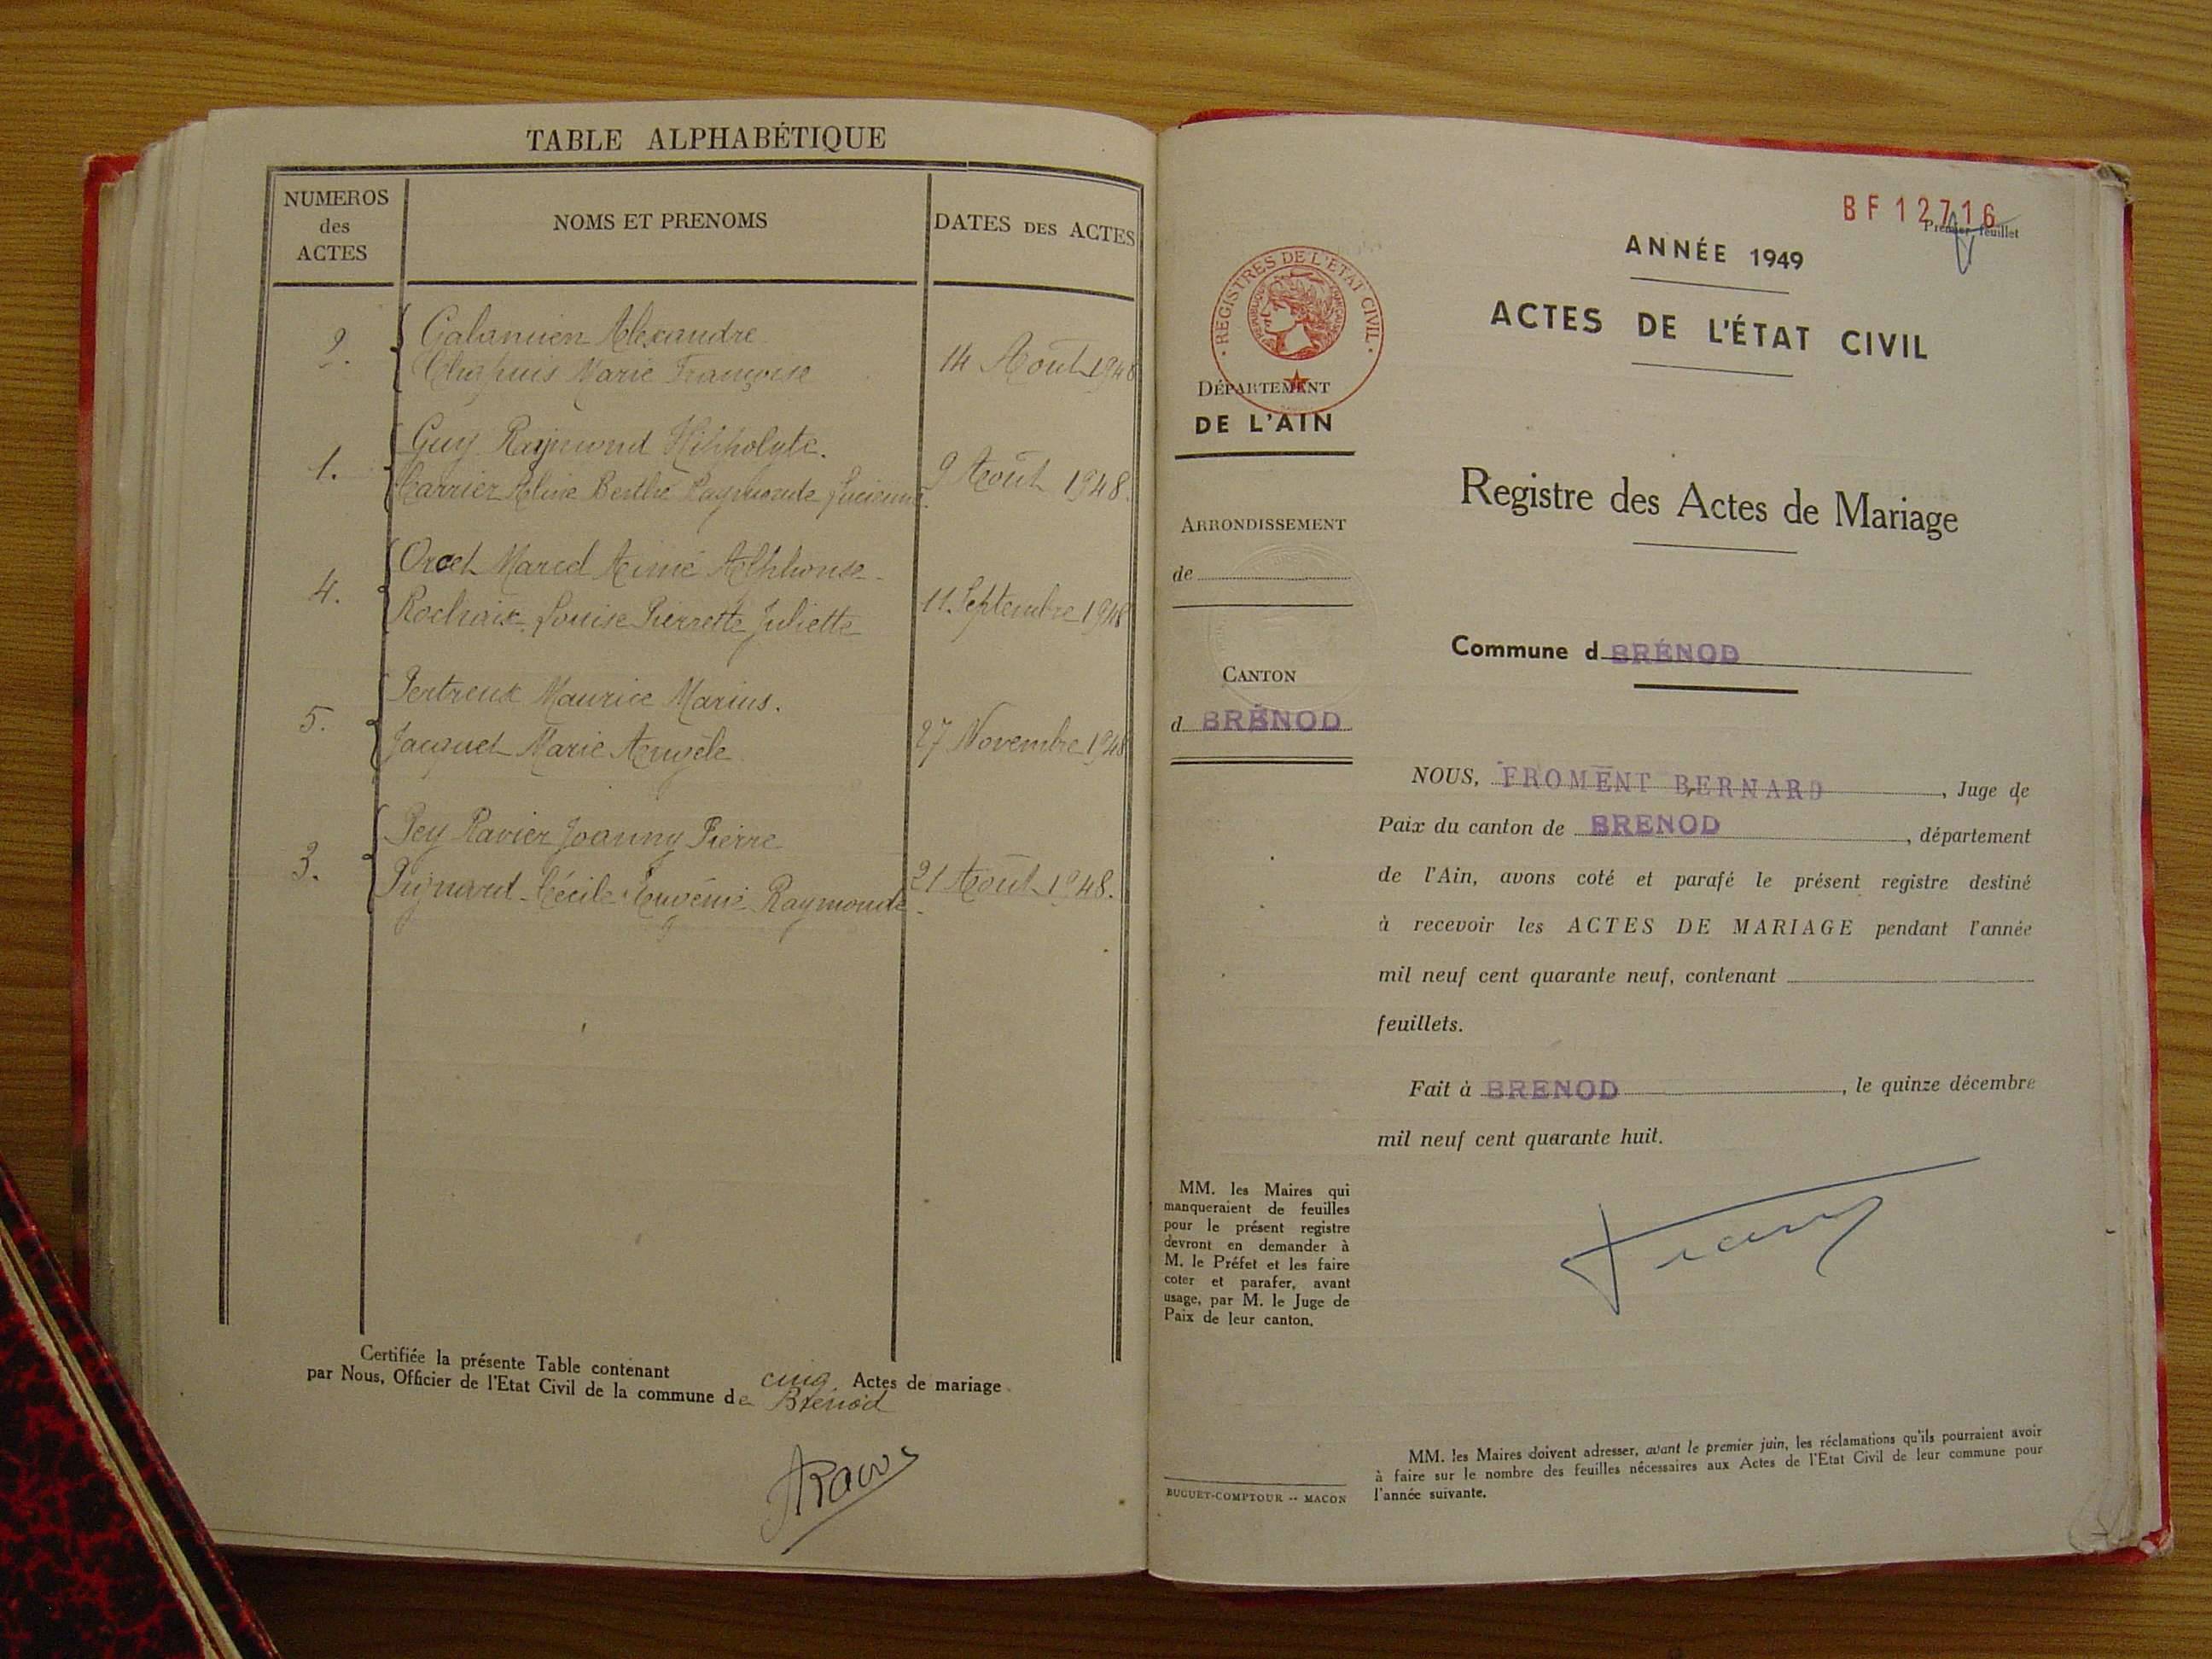 TABLE ALPHABÉTIQUE
NUMEROS
des
ACTES
NOMS ET PRENOMS
DATES DES ACTES
2.
Alexandre
Chapuis Marie Françoise
14 Août 1948
1.
Guy Raymond Hippolyte.
Carrier Aline Berthe Raymonde Lucienne.
9 Août 1948.
4.
Orcet Marcel Aimé Alphonse
Rochaix Louise Pierrette Juliette
11 Septembre 1948
5.
Pertreux Maurice Marius.
Jacquet Marie Angèle
27 Novembre 1948
3.
Pey Ravier Joanny Pierre
Cécile Eugénie Raymonde
21 Août 1948.
Certifiée la présente Table contenant cinq Actes de mariage
par Nous, Officier de l'Etat Civil de la commune de Brénod
BF 12716
Premier feuillet
ANNÉE 1949
ACTES DE L'ÉTAT CIVIL
REGISTRES DE L'ÉTAT CIVIL
RÉPUBLIQUE FRANÇAISE
DÉPARTEMENT
DE L'AIN
Registre des Actes de Mariage
ARRONDISSEMENT
de
Commune d BRÉNOD
CANTON
d BRÉNOD
NOUS, FROMENT BERNARD, Juge de
Paix du canton de BRENOD, département
de l'Ain, avons coté et parafé le présent registre destiné
à recevoir les ACTES DE MARIAGE pendant l'année
mil neuf cent quarante neuf, contenant
feuillets.
Fait à BRENOD, le quinze décembre
mil neuf cent quarante huit.
MM. les Maires qui
manqueraient de feuilles
pour le présent registre
devront en demander à
M. le Préfet et les faire
coter et parafer, avant
usage, par M. le Juge de
Paix de leur canton.
MM. les Maires doivent adresser, avant le premier juin, les réclamations qu'ils pourraient avoir
à faire sur le nombre des feuilles nécessaires aux Actes de l'État Civil de leur commune pour
l'année suivante.
BUGUET-COMPTOUR -- MACON